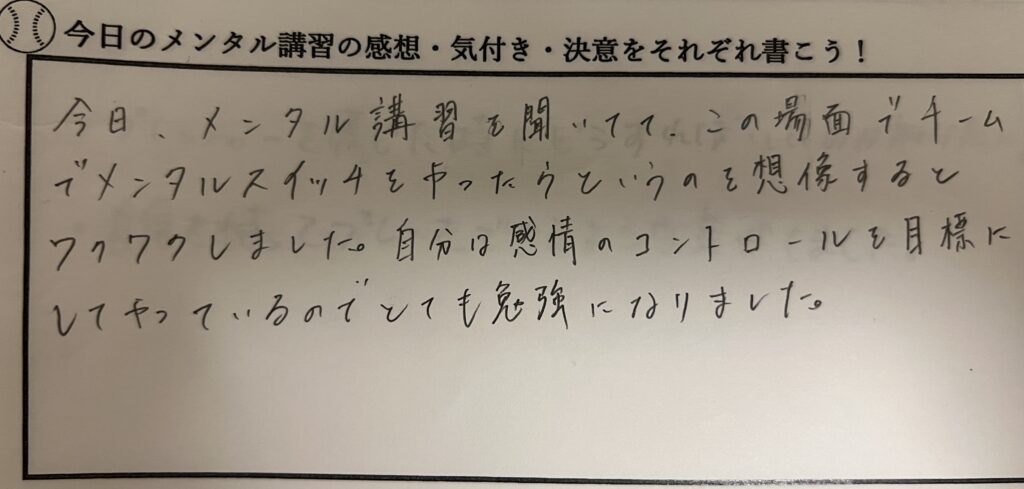 今日のメンタル講習の感想・気付き・決意をそれぞれ書こう！
今日、メンタル講習を聞いてて、この場面でチーム
でメンタルスイッチをやったらというのを想像すると
ワクワクしました。自分は感情のコントロールを目標に
してやっているのでとても勉強になりました。